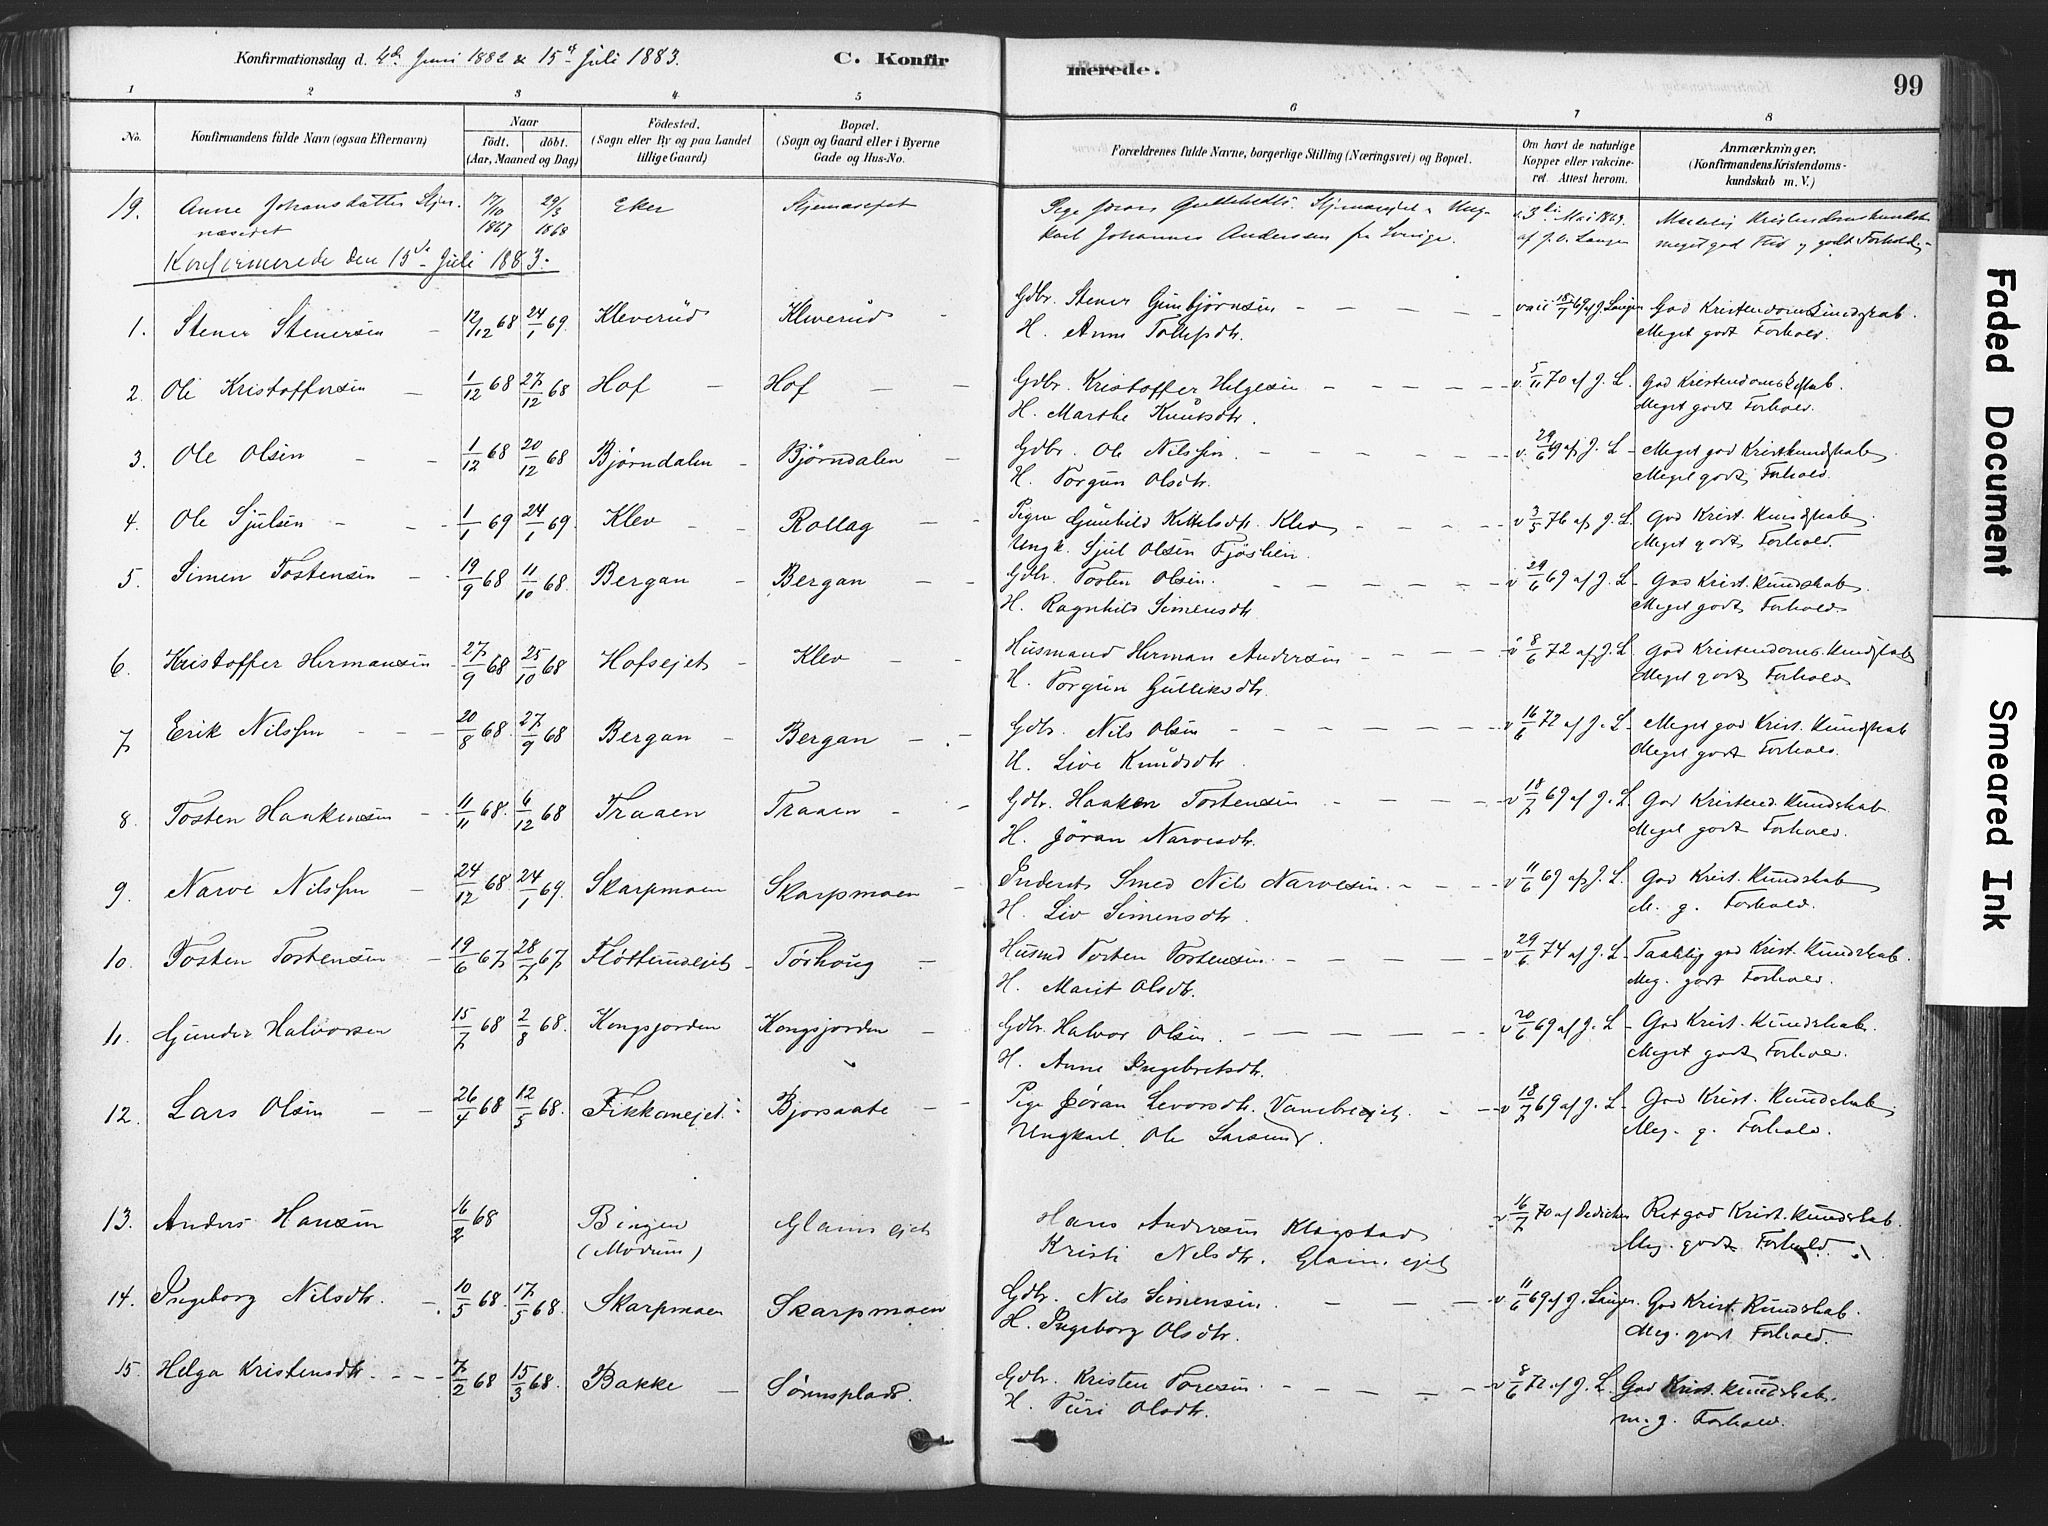 Konfirmationsdag d. 4de Juni 1882 & 15de Juli 1883.
C. Konfirmerede.
99
1 2 3 4 5 6 7 8
No.
Konfirmandens fulde Navn (ogsaa Efternavn)
Naar
födt. döbt.
(Aar, Maaned og Dag)
Födested.
(Sogn eller By og paa Landet
tillige Gaard)
Bopæl.
(Sogn og Gaard eller i Byerne
Gade og Hus-No.
Forældrenes fulde Navne, borgerlige Stilling (Næringsvei) og Bopæl.
Om havt de naturlige
Kopper eller vakcine-
ret. Attest herom.
Anmærkninger.
(Konfirmandens Kristendoms-
kundskab m. V.)
19. Anne Johansdatter 17/10 1867 29/3 1868 Eker
Johannes Andersen fra Sverige.
3die Mai 1869 af J. v. Langen
meget god Flid og godt Forhold
Konfirmerede den 15de Juli 1883.
1. Stener Stenersen 12/12 68 24/1 69. Kleverud Kleverud Gdbr. Stener Gunbjörnsen vacc 18/7 69 af J. Langen God Kristendomskundskab.
H. Anne Tollefsdtr. Meget godt Forhold.
2. Ole Kristoffersen 1/12 68 27/12 68 Hof Hof Gdbr. Kristoffer Helgesen v. 5/11 70 af J. L. God Kristendomskdskab.
H. Marthe Knutsdtr. Meget godt Forhold.
3. Ole Olsen 1/12 68 20/12 68 Björndalen Björndalen Gdbr. Ole Nilssen v. 29/6 69 af J. L. Meget god Kristkundskab.
H. Torgun Olsdtr. Meget godt Forhold.
4. Ole Sjulsen 1/1 69 24/1 69. Klev Rollag Pigen Gunhild Kittelsdtr. Klev v 3/5 76 af J. L. God Krist. Kundskab.
Ungk. Sjul Olsen Fjöslien. Meget godt Forhold.
5. Simen Tostensen 19/9 68 11/10 68 Bergan Bergan Gdbr. Tosten Olsen. v 29/6 69 af J. L. God Krist. Kundskab.
H. Ragnhild Simensdtr. Meget godt Forhold
6. Kristoffer Hermansen 27/9 68 25/10 68 Hofsejet Klev Husmand Herman Andersen v 8/6 72 af J. L. God Kristendoms Kundskab
H. Torgun Gulliksdtr. Meget godt Forhold
7. Erik Nilssen 20/8 68. 27/9 68 Bergan Bergan Gdbr. Nils Olsen v 16/6 72 af J. L. Meget god Krist. Kundskab
H. Live Knudsdtr Meget godt Forhold.
8. Tosten Haakensen 11/11 68. 6/12 68 Traaen Traaen Gdbr. Haaken Tostensen v 18/7 69 af J. L. God Kristend. Kundskab
H. Jöran Narvesdtr. Meget godt Forhold.
9. Narve Nilssen 24/12 68 24/1 69. Skarpmoen Skarpmoen Inderst Smed Nils Narvesen. v 11/6 69 af J. L. God Krist. Kundskab
H. Liv Simensdtr. M. g. Forhold.
10. Tosten Tostensen 19/6 67 28/7 67. Flötterudejet Törhoug Husmd Tosten Tostensen v 29/6 74 af J. L. Taalelig god Krist. Kundskab.
H. Marit Olsdtr. Meg. godt Forhold.
11. Gunder Halvorsen 15/7 68 2/8 68. Kongsjorden Kongsjorden Gdbr. Halvor Olsen. v 20/6 69 af J. L God Krist. Kundskab.
H. Anne Ingebretsdtr. Meget godt Forhold.
12. Lars Olsen 26/4 68 12/5 68. Fikkanejet. Bjorsaate Pige Jöran Levorsdtr. v 18/7 69 af J. L God Krist. Kundskab
Ungkarl. Ole Larsen Meg. g. Forhold.
13. Anders Hansen 16/2 68 Bingen Glaimsejet Hans Andersen Klagstad v 16/7 70 af Dedichen Ret god Krist. Kundskab.
(Modum) Kristi Nilsdtr. Glaim. ejet Meg. godt Forhold.
14. Ingeborg Nilsdtr. 10/5 68. 17/5 68. Skarpmoen Skarpmoen Gdbr. Nils Simensen. v. 11/6 69 af J. Langen. God Krist. Kundskab.
H. Ingeborg Olsdtr. Meg. godt Forhold.
15. Helga Kristensdtr. 7/2 68 15/3 68. Bakke Sönnsplads. Gdbr. Kristen Toresen. v 8/6 72 af J. L. God Krist. Kundskab.
H. Turi Olsdtr. m. g. Forhold.
Faded Document
Smeared Ink